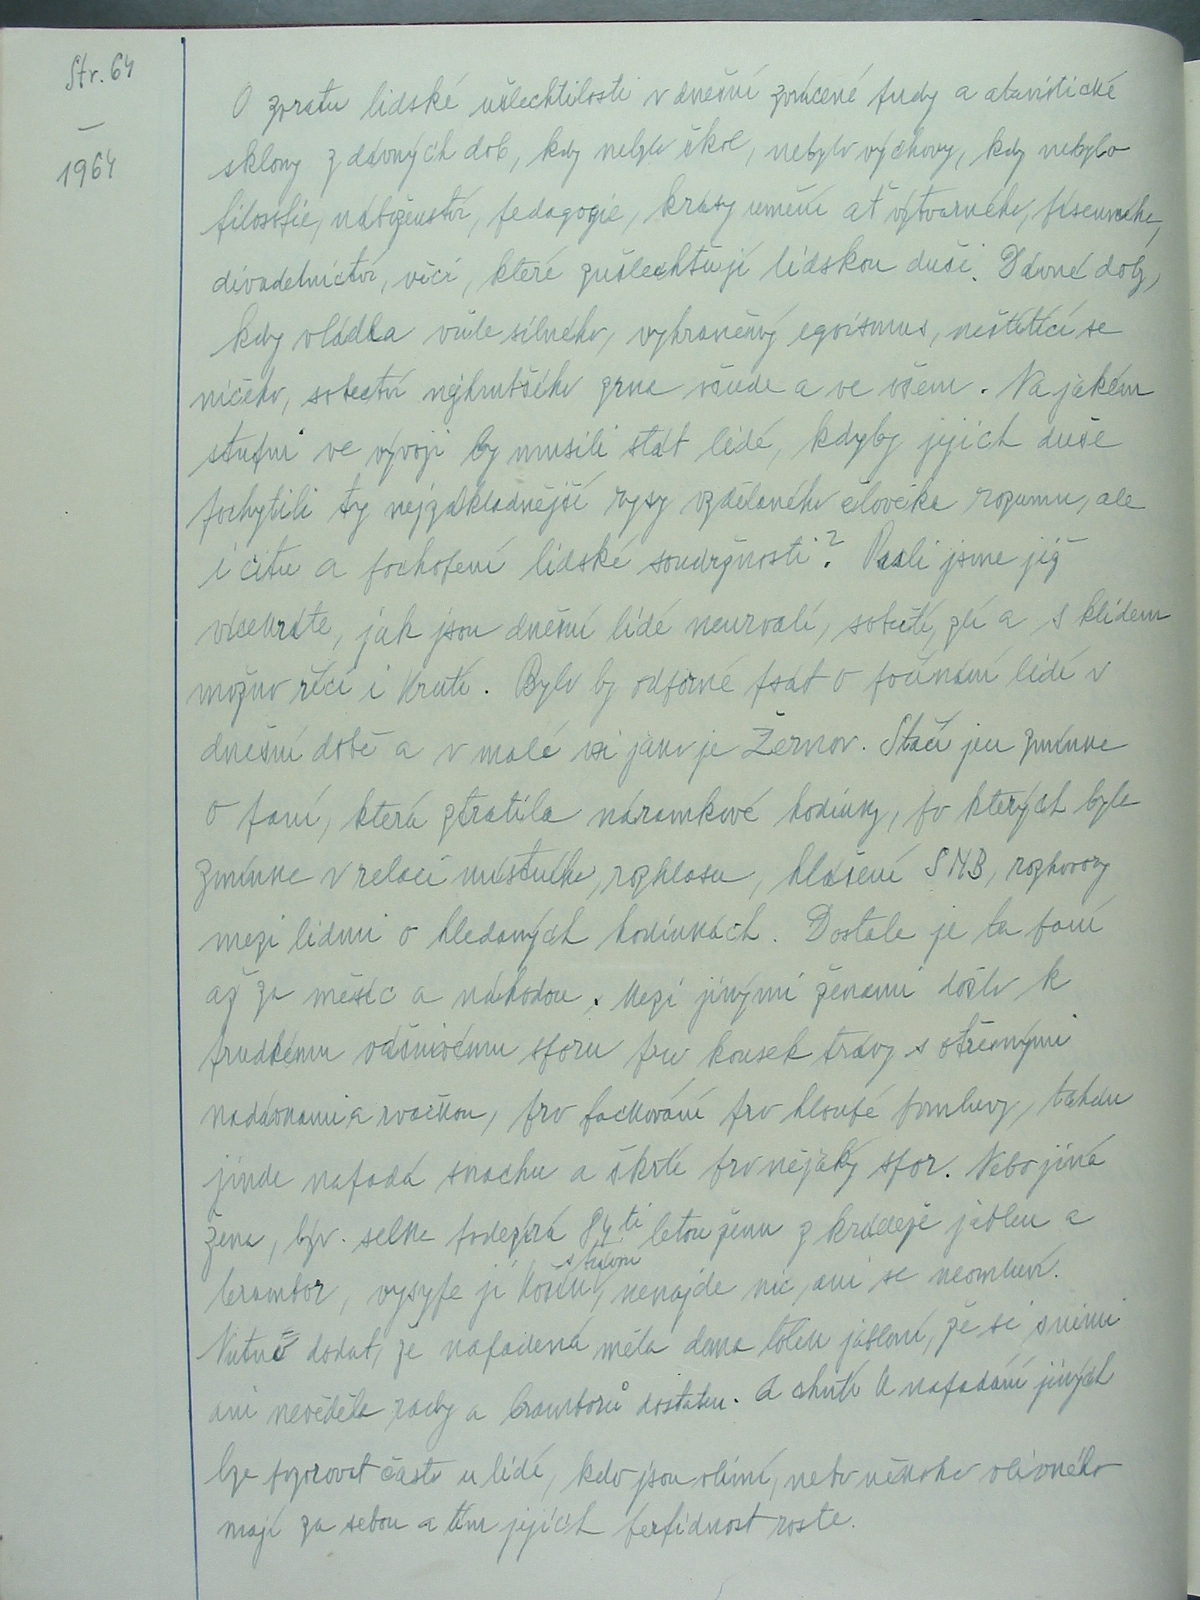 Str. 64
—
1964
O zvratu lidské ušlechtilosti v dnešní zvrácené pudy a atavistické
sklony z dávných dob, kdy nebylo škol, nebylo výchovy, kdy nebylo
filosofie, náboženství, pedagogie, krásy umění ať výtvarného, písemného,
divadelnictví, věcí, které zušlechťují lidskou duši. Dávné doby,
kdy vládla vůle silného, vyhraněný egoismus, neštítící se
ničeho, sobectví nejhrubšího zrna všude a ve všem. Na jakém
stupni ve vývoji by musili stát lidé, kdyby jejich duše
pochytili ty nejzákladnější rysy vzdělaného člověka rozumu, ale
i citu a pochopení lidské soudržnosti? Psali jsme již
vícekráte, jak jsou dnešní lidé neurvalí, sobečtí, zlí a s klidem
možno říci i krutí. Bylo by odporné psát o počínání lidí v
dnešní době a v malé vsi jako je Žernov. Stačí jen zmínka
o paní, která ztratila náramkové hodinky, po kterých byla
zmínka v relaci místního rozhlasu, hlášení SNB, rozhovory
mezi lidmi o hledaných hodinkách. Dostala je ta paní
až za měsíc a náhodou. Mezi jinými ženami došlo k
prudkému vášnivému sporu pro kousek trávy s otřesnými
nadávkami a rvačkou, pro fackování pro hloupé pomluvy, tchán
jinde napadá snachu a škrtí pro nějaký spor. Nebo jiná
žena, bývalá selka podezírá 84 ti letou ženu z krádeže jablek a
brambor, vysype jí košík s trávou, nenajde nic, ani se neomluví.
Nutně dodat, že napadená měla doma tolik jabloní, že si s nimi
ani nevěděla rady a bramborů dostatek. A chuti k napadání jiných
lze pozorovat často u lidí, kdo jsou vlivní, nebo někoho vlivného
mají za sebou a tím jejich perfidnost roste.